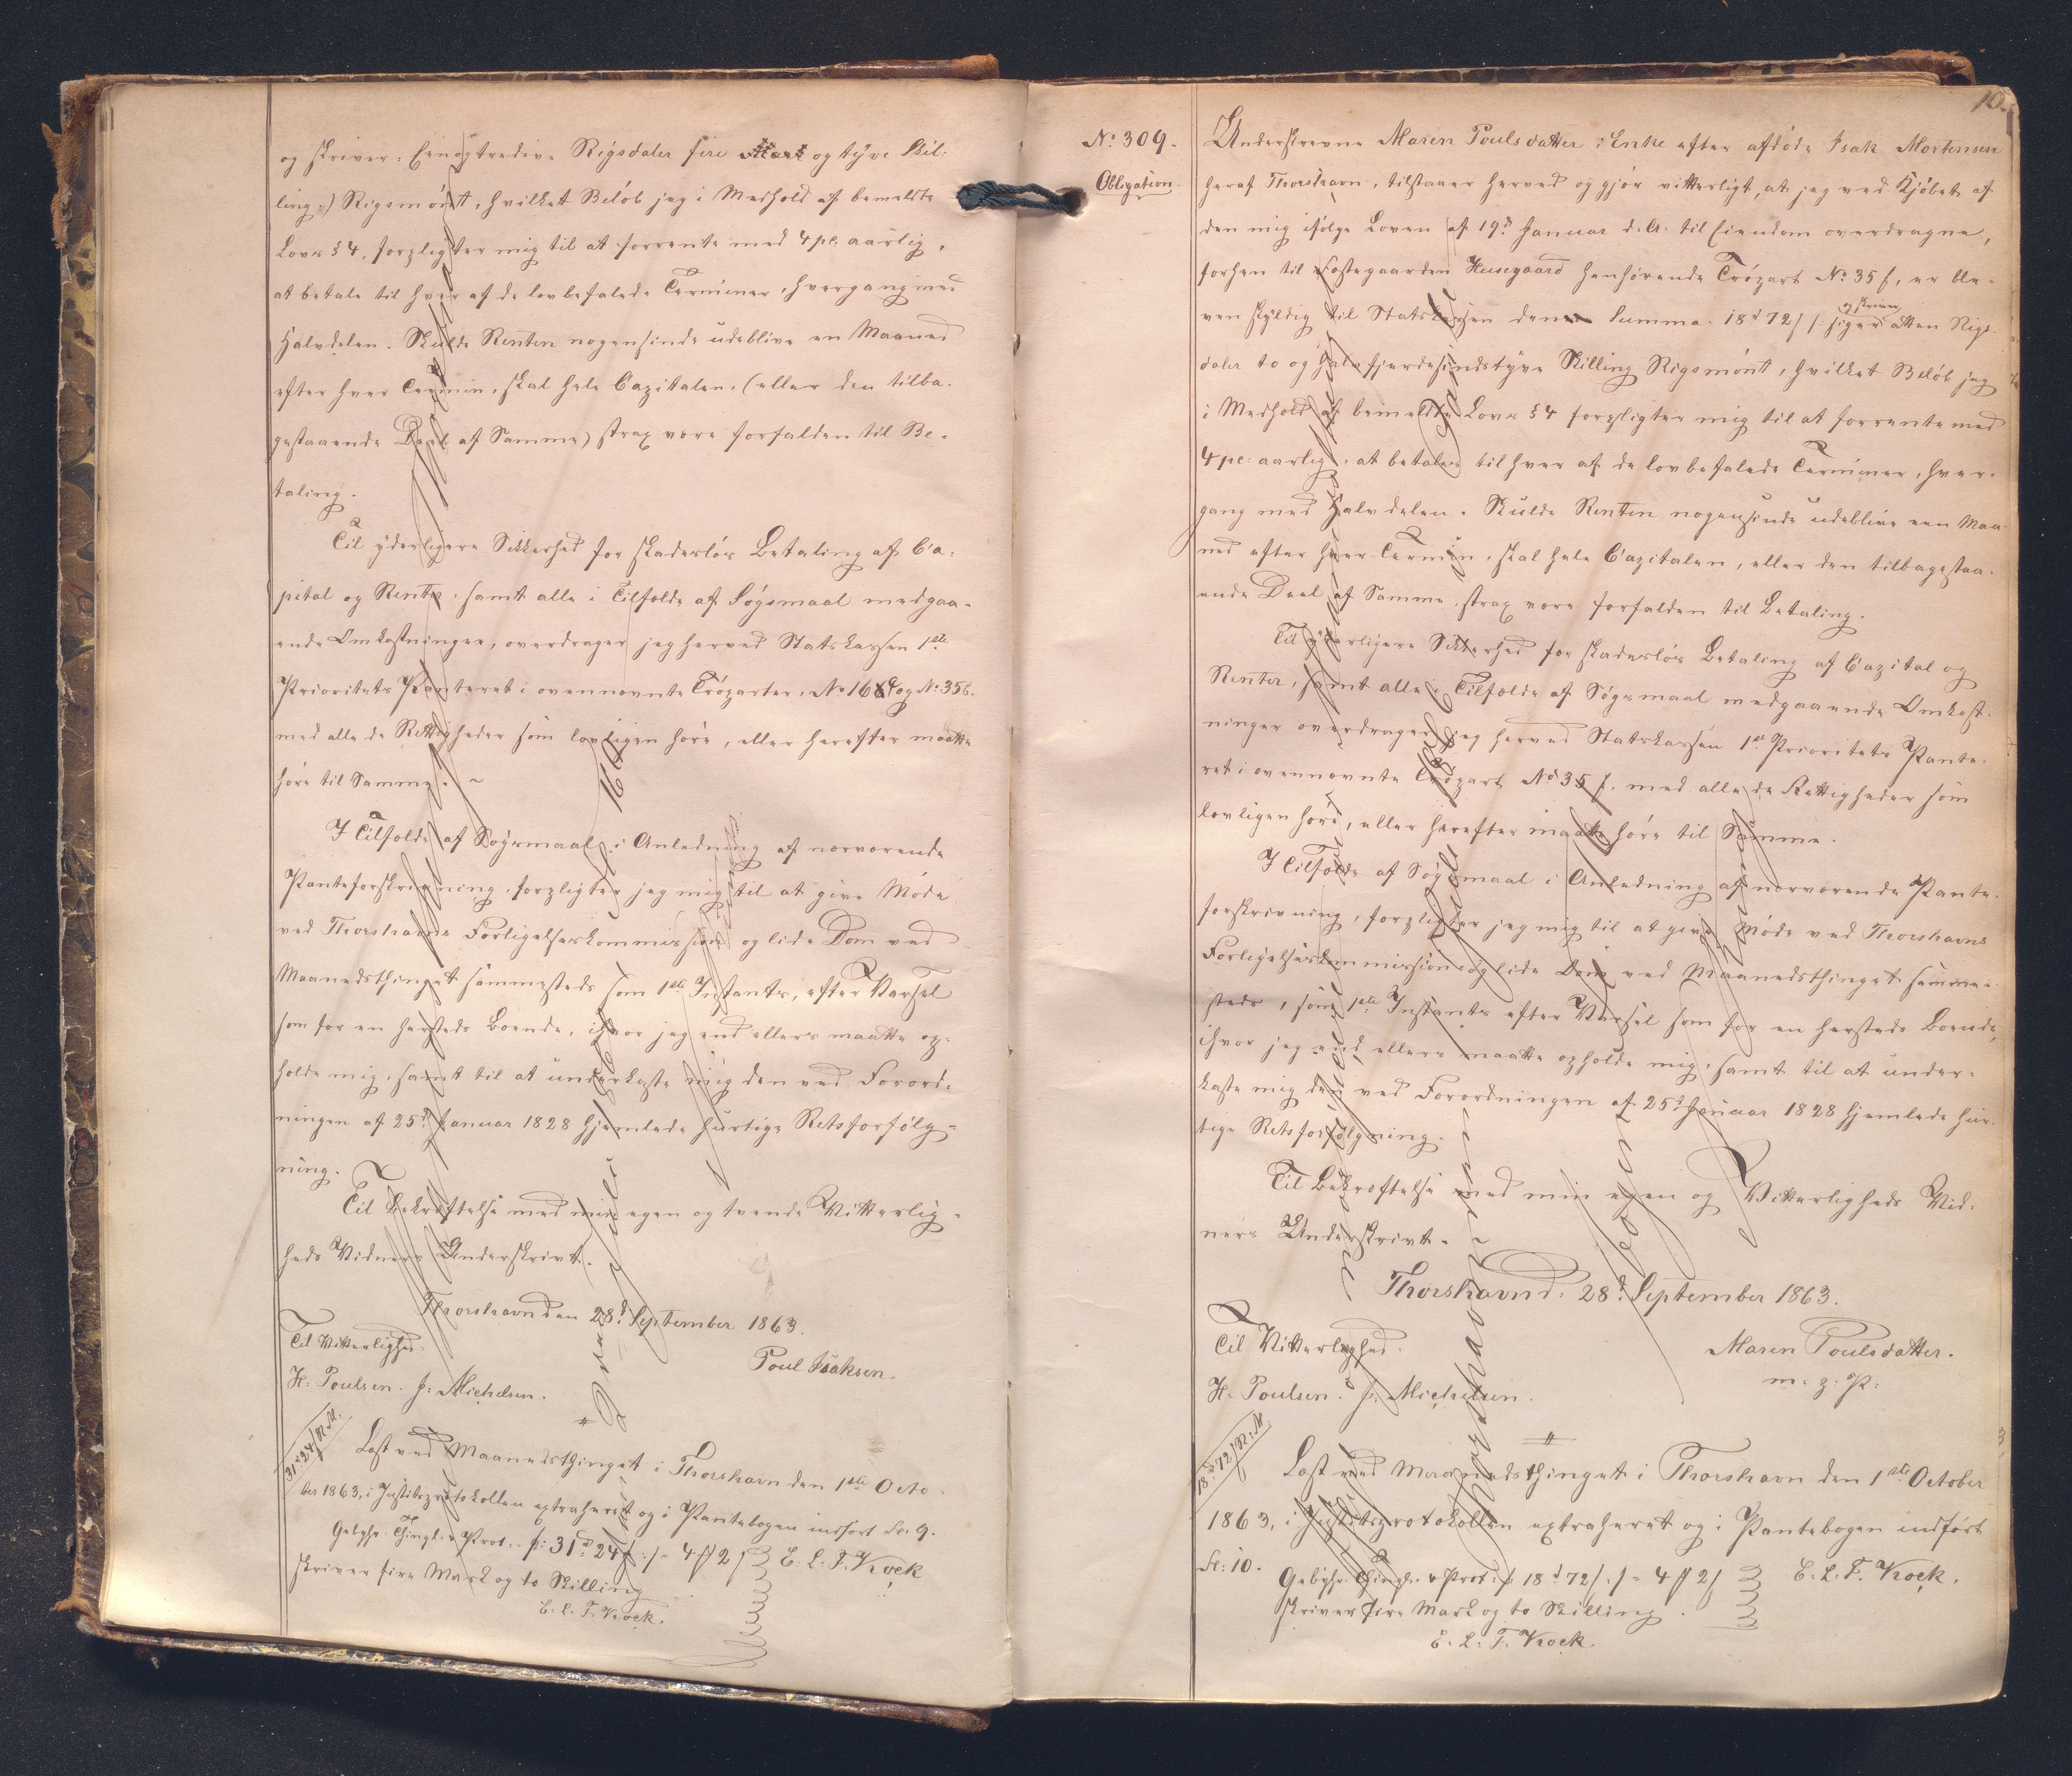 og skriver: Eenogtredive Rigsdaler fire Mark og tyve Skil-
ling:) Rigsmönt, hvilket Beløb jeg i Medhold af bemeldte
Lovs § 4, forpligter mig til at forrente med 4 pc. aarlig,
at betale til hver af de lovbefalede Terminer, hvergang med
Halvdelen. Skulde Renten nogensinde udeblive en Maaned
efter hver Termin, skal hele Capitalen, (eller den tilba-
gestaaende Deel af Samme) strax være forfalden til Be-
taling.
Til yderligere Sikkerhed for skadesløs Betaling af Ca-
pital og Renter, samt alle i Tilfælde af Søgsmaal medgaa-
ende Omkostninger, overdrager jeg herved Statskassen 1ste
Prioritets Panteret i ovennævnte Trøparter, No 16 og No 35
med alle de Rettigheder som lovligen høre, eller herefter maatte
høre til Samme. ~
I Tilfælde af Søgsmaal i Anledning af nærværende
Panteforskrivning, forpligter jeg mig til at give Møde
ved Thorshavns Forligelseskommission og lide Dom ved
Maanedsthinget sammesteds som 1ste Instants, efter Varsel
som for en hersteds Boende, ihvor jeg end ellers maatte op-
holde mig, samt til at underkaste mig den ved Forord-
ningen af 25d Januar 1828 hjemlede hurtige Retsforfølg-
ning.
Til Bekræftelse med min egen og tvende Vitterlig-
heds Vidners Underskrivt.
Thorshavn den 28d September 1863.
Til Vitterlighed.
Poul Isaksen.
H. Poulsen. J. Michelsen.
31rd 24/ R.M.
Læst ved Maanedsthinget i Thorshavn den 1ste Octo-
ber 1863, i Justitsprotokollen extraheret og i Pantebogen indført Fol. 9.
Gebyhr. Thingl. & Prot. /: 31rd 24/ :/ = 4 # 2/ E. L. T. Krock
skriver fire Mark og to Skilling
E. L. T. Krock.
10.
No 309.
Obligation.
Underskrevne Maren Poulsdatter, Enke efter afdøde Isak Mortensen
heraf Thorshavn, tilstaaer herved og gjør vitterligt, at jeg ved Kjøbet af
den mig ifølge Loven af 19d Januar d. A. til Eiendom overdragne,
forhen til Fæstegaarden Husegaard henhørende Trøpart No 35 f, er ble-
ven skyldig til Statskassen den Summa 18d 72/ /: siger og skriver atten Rigs-
daler to og halvfjerdesindstyve Skilling Rigsmönt, hvilket Beløb jeg
i Medhold af bemeldte Lovs § 4 forpligter mig til at forrente med
4 pc. aarlig, at betale til hver af de lovbefalede Terminer, hver-
gang med Halvdelen. Skulde Renten nogensinde udeblive een Maa-
ned efter hver Termin, skal hele Capitalen, eller den tilbagestaa-
ende Deel af Samme, strax være forfalden til Betaling.
Til yderligere Sikkerhed for skadesløs Betaling af Capital og
Renter, samt alle i Tilfælde af Søgsmaal medgaaende Omkost-
ninger overdrager jeg herved Statskassen 1ste Prioritets Pante-
ret i ovennævnte Trøpart No 35 f, med alle de Rettigheder som
lovligen høre, eller herefter maatte høre til Samme.
I Tilfælde af Søgsmaal i Anledning af nærværende Pante-
forskrivning, forpligter jeg mig til at give Møde ved Thorshavns
Forligelseskommission og lide Dom ved Maanedsthinget samme-
steds, som 1ste Instants efter Varsel som for en hersteds Boende,
ihvor jeg end ellers maatte opholde mig, samt til at under-
kaste mig den ved Forordningen af 25d Januar 1828 hjemlede hur-
tige Retsforfølgning.
Til Bekræftelse med min egen og Vitterligheds Vid-
ners Underskrivt.
Thorshavn d. 28d September 1863.
Til Vitterlighed.
Maren Poulsdatter.
m. p. P.
H. Poulsen. J. Michelsen.
18rd 72/ R.M.
Læst ved Maanedsthinget i Thorshavn den 1ste October
1863, i Justitsprotokollen extraheret og i Pantebogen indført
Fol. 10.
Gebyhr. Thingl. & Prot. /: 18d 72/ :/ = 4 # 2/ E. L. T. Krock.
skriver fire Mark og to Skilling.
E. L. T. Krock.